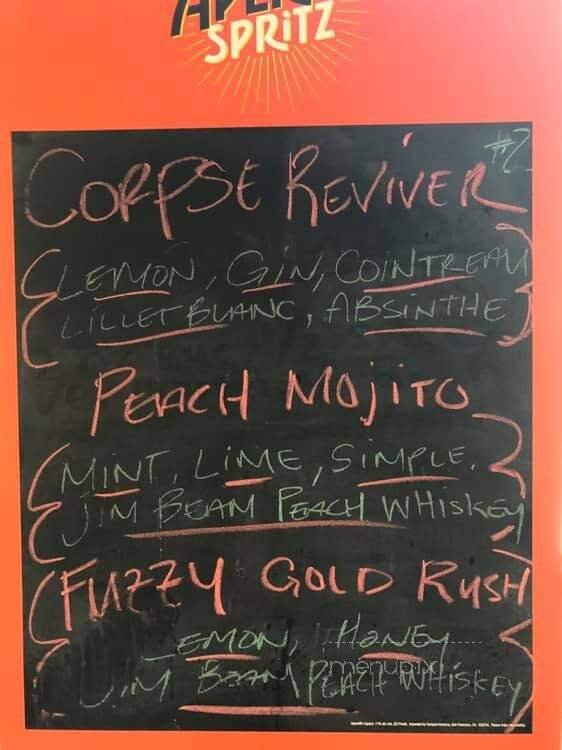 SPRITZ
CORPSE REVIVER #2
LEMON, GIN, COINTREAU
LILLET BLANC, ABSINTHE
PEACH MOJITO
MINT, LIME, SIMPLE,
JIM BEAM PEACH WHISKEY
FUZZY GOLD RUSH
LEMON, HONEY
menupix
JIM BEAM PEACH WHISKEY